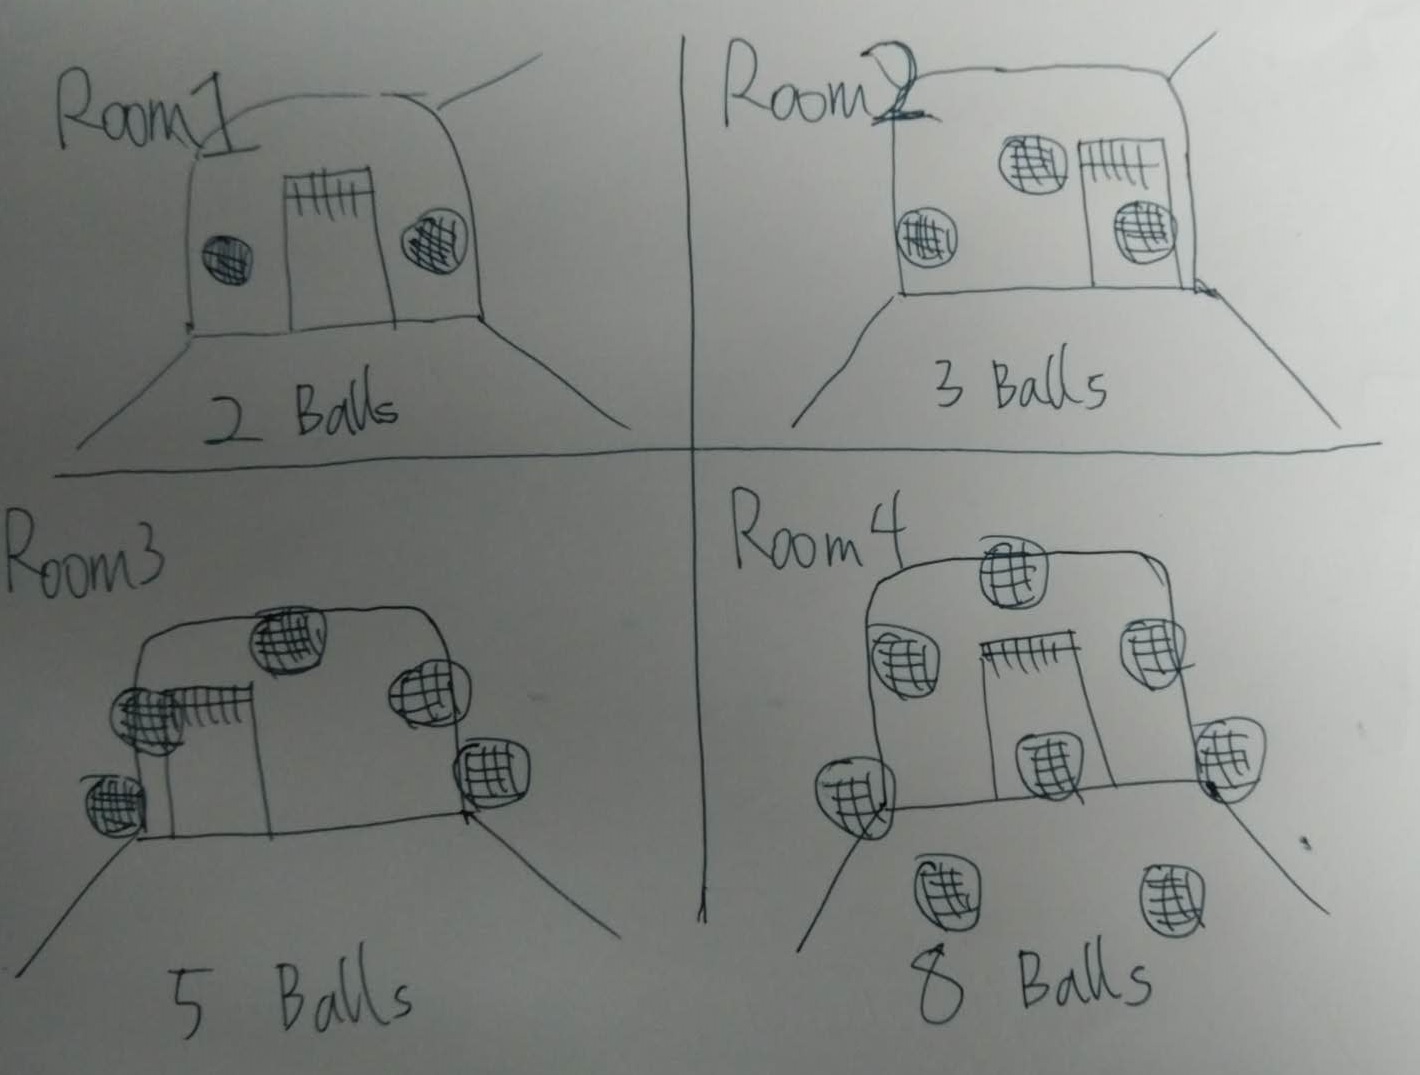 Room1
2 Balls
Room2
3 Balls
Room3
5 Balls
Room4
8 Balls